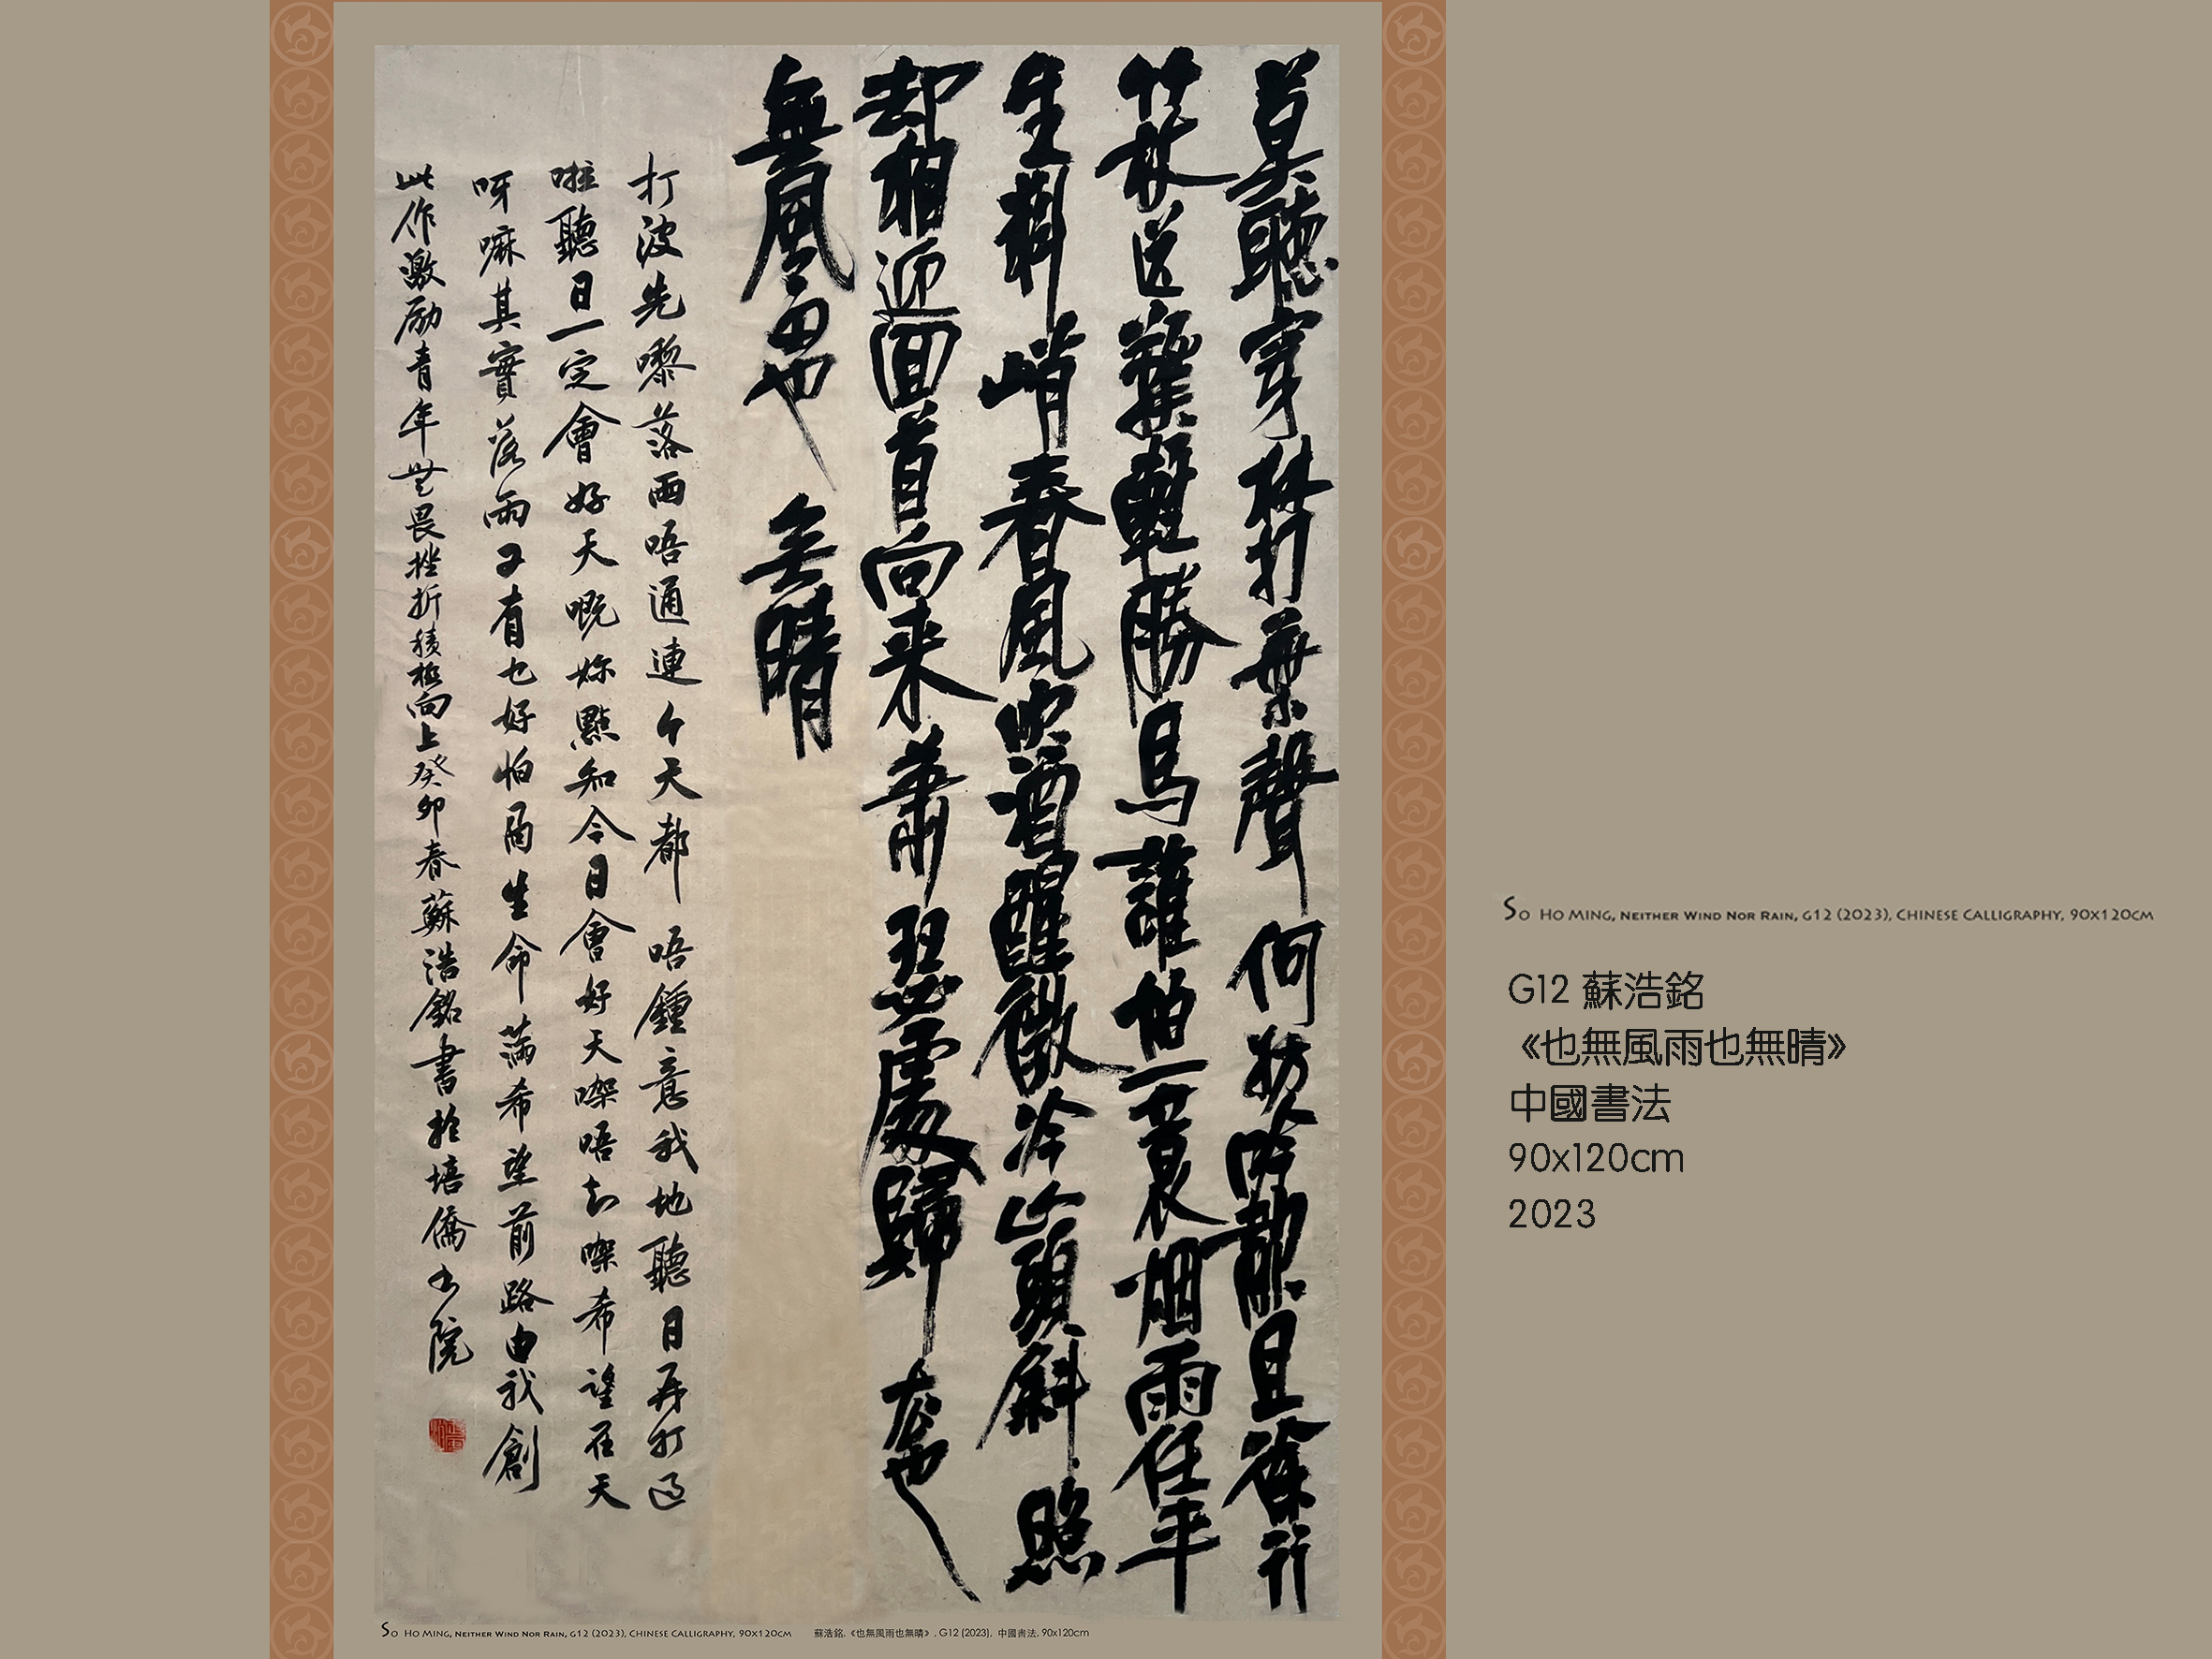 莫聽穿林打葉聲何妨吟嘯且徐行
竹杖芒鞋輕勝馬誰怕一蓑烟雨任平
生料峭春風吹酒醒微冷山頭斜照
却相迎回首向来蕭瑟處歸去也
無風雨也无晴
打波先嚟落雨唔通連个天都唔鍾意我地聽日再打過
啦聽日一定會好天嘅妳點知今日會好天㗎唔知㗎希望在天
呀嘛其實落雨又有乜好怕咼生命滿希望前路由我創
此作激励青年無畏挫折積極向上癸卯春蘇浩銘書於培僑書院
So Ho Ming, Neither Wind Nor Rain, G12 (2023), Chinese Calligraphy, 90x120cm
蘇浩銘,《也無風雨也無晴》, G12 (2023), 中國書法, 90x120cm
So Ho Ming, Neither Wind Nor Rain, G12 (2023), Chinese Calligraphy, 90x120cm
G12 蘇浩銘
《也無風雨也無晴》
中國書法
90x120cm
2023